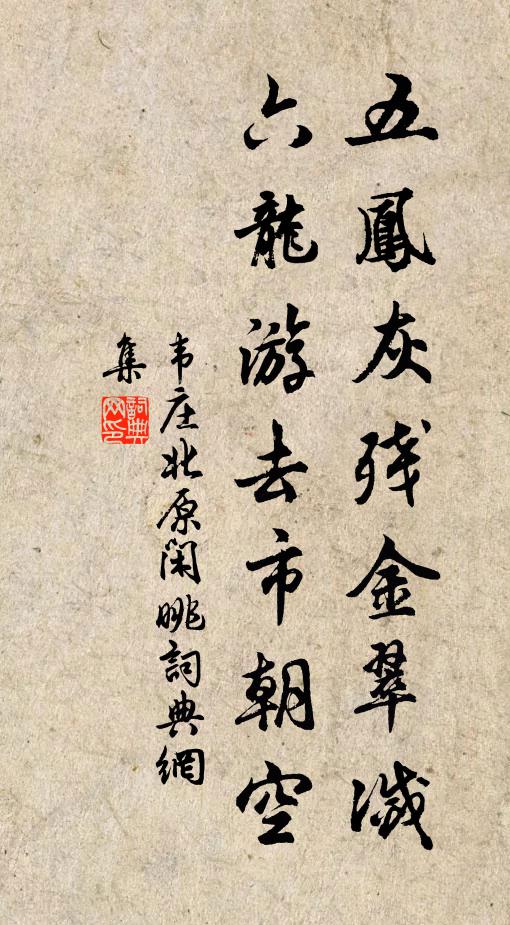 五鳳灰残金翠滅
六龍游去市朝空
韦庄北原闲眺詞典網
集
詞典网印